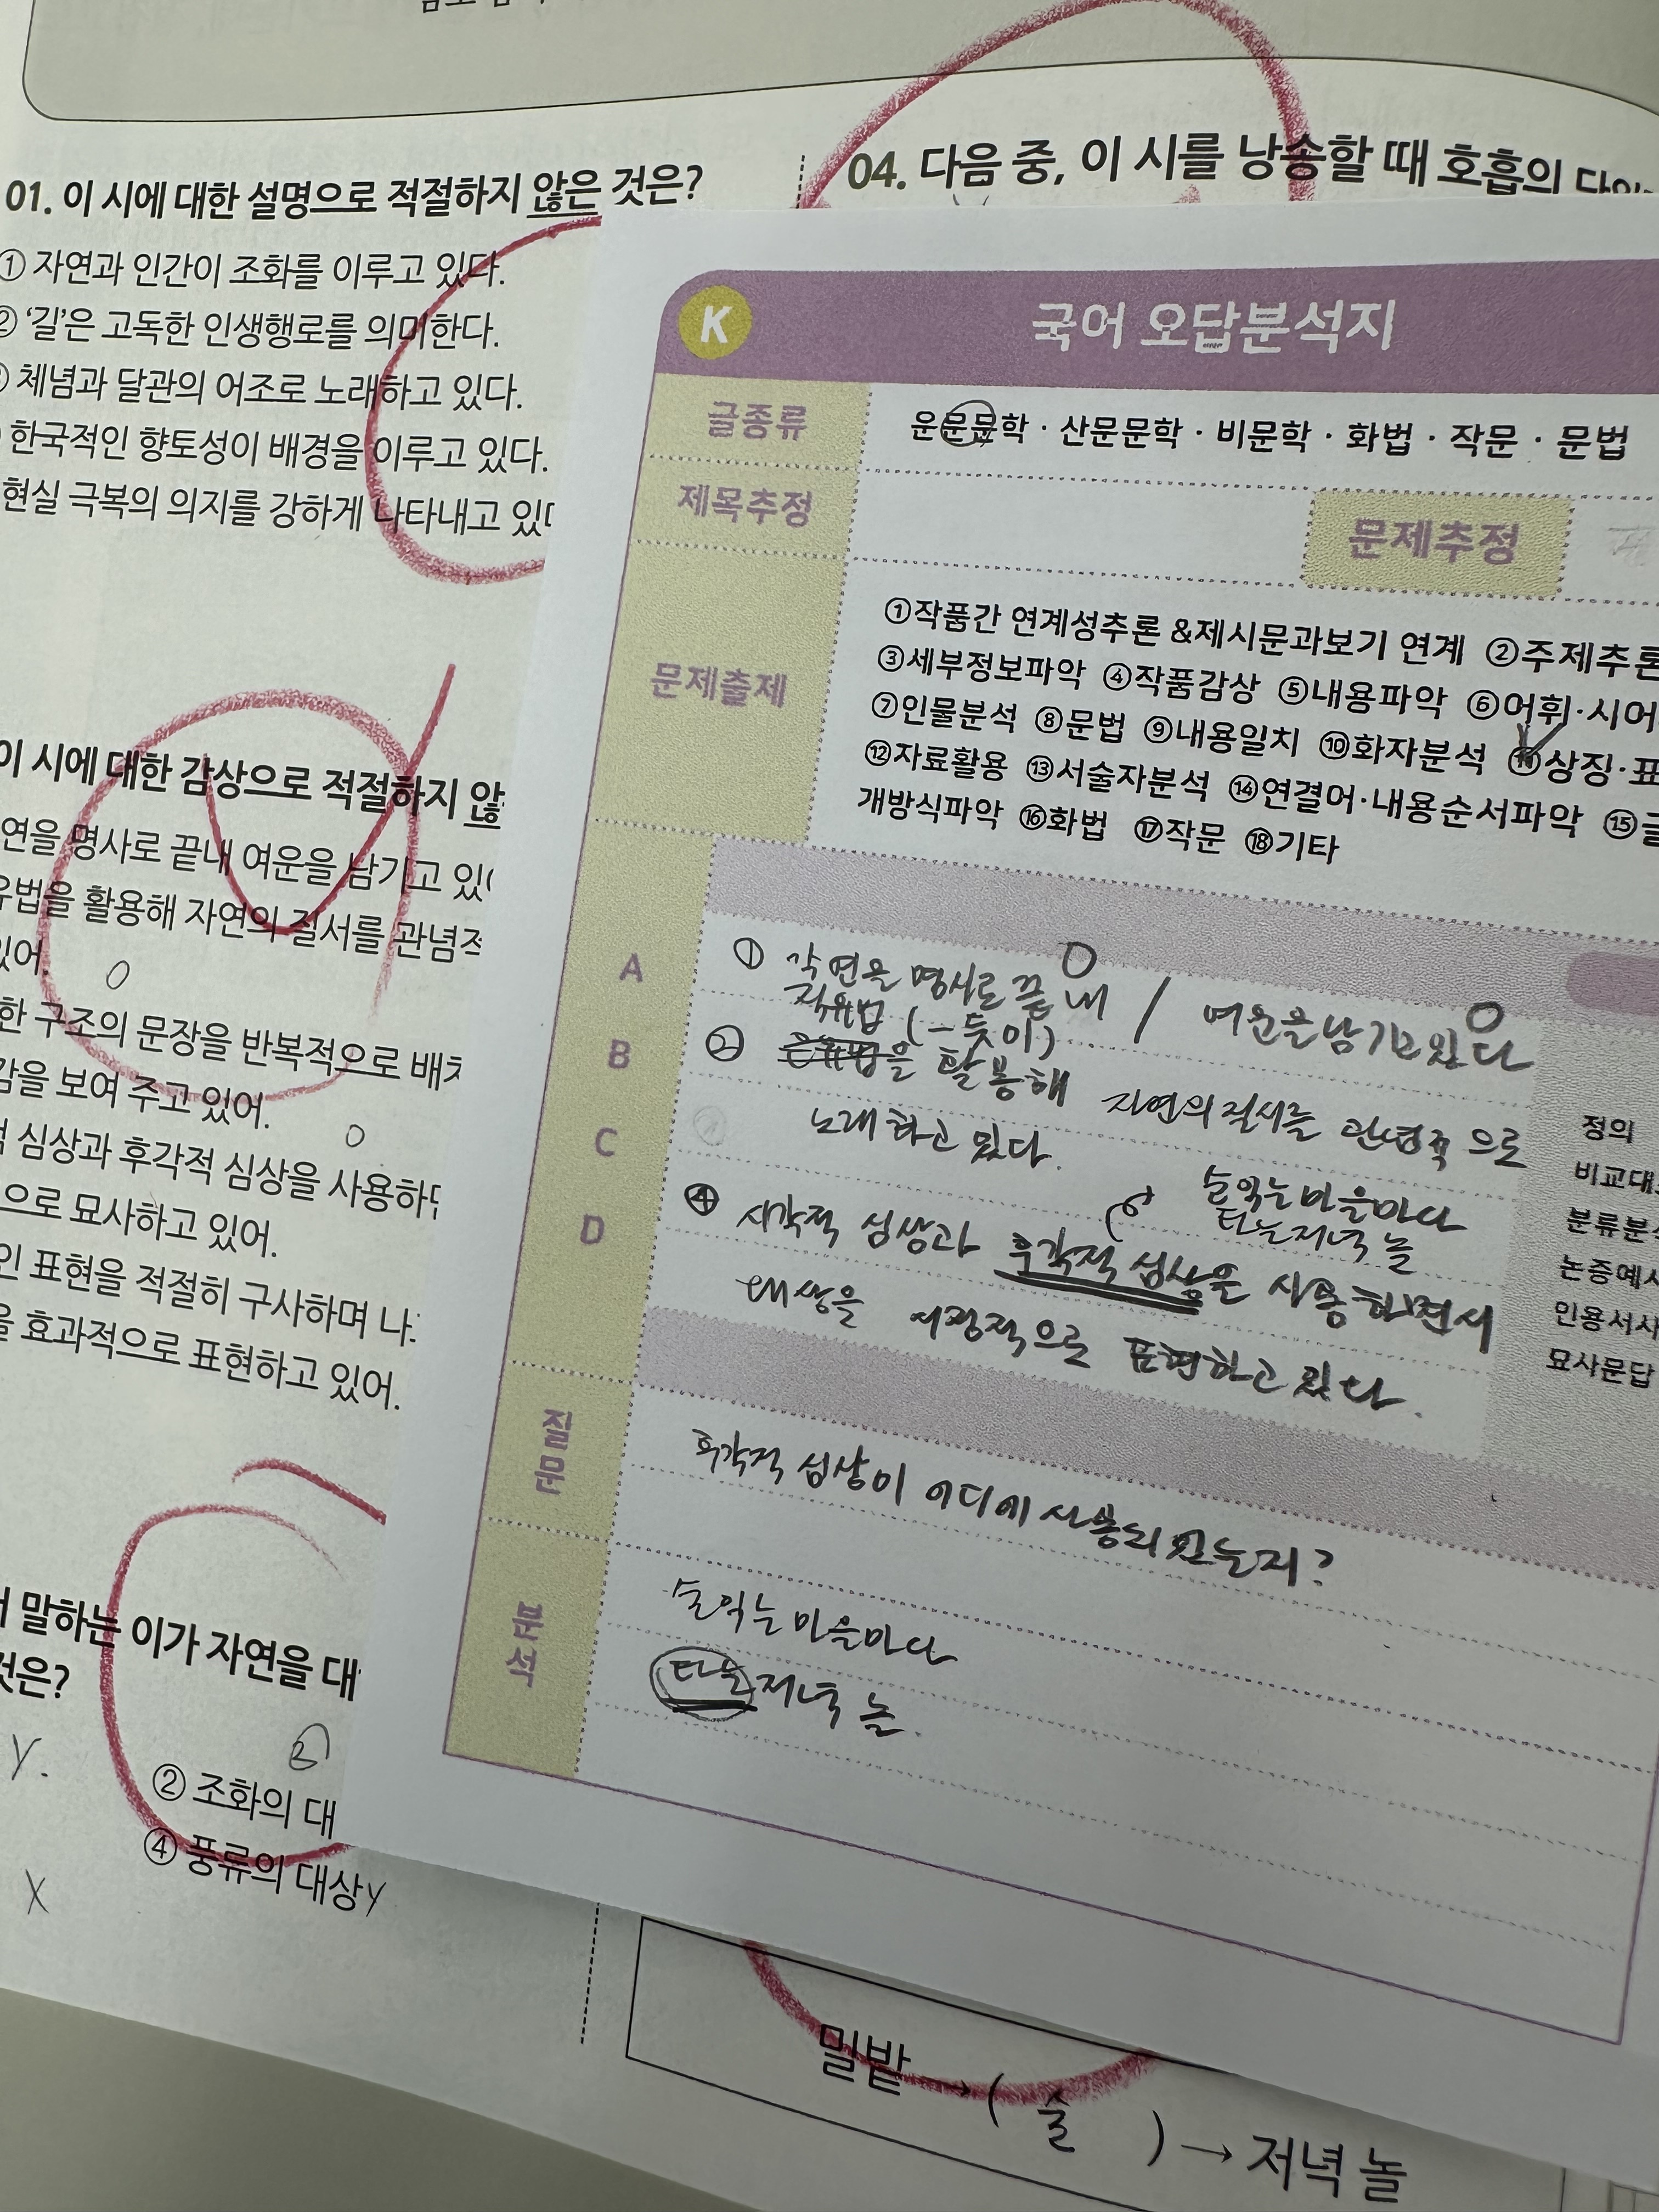 01. 이 시에 대한 설명으로 적절하지 않은 것은?
① 자연과 인간이 조화를 이루고 있다.
② ‘길’은 고독한 인생행로를 의미한다.
체념과 달관의 어조로 노래하고 있다.
한국적인 향토성이 배경을 이루고 있다.
현실 극복의 의지를 강하게 나타내고
이 시에 대한 감상으로 적절하지
연을 명사로 끝내 여운을 남기고
활용해 자연의 질서를
있어.
한 구조의 문장을 반복적으로
감을 보여 주고 있어.
심상과 후각적 심상을
으로 묘사하고 있어.
인 표현을 적절히 구사하며
을 효과적으로 표현하고 있어.
말하는 이가 자연을
것은?
② 조화의
④ 풍류의 대상
04. 다음 중, 이 시를 낭송할 때 호흡의
K
국어 오답분석지
글종류
운문문학 · 산문문학 · 비문학 · 화법 · 작문 · 문법
제목추정
문제추정
문제출제
①작품간 연계성추론 &제시문과보기 연계 ②주제추론
③세부정보파악 ④작품감상 ⑤내용파악 ⑥어휘·시어
⑦인물분석 ⑧문법 ⑨내용일치 ⑩화자분석 ⑪상징·표
⑫자료활용 ⑬서술자분석 ⑭연결어·내용순서파악 ⑮글
개방식파악 ⑯화법 ⑰작문 ⑱기타
A
B
C
D
① 각 연을 명사로 끝내 / 여운을 남기고 있다
직유법 (-듯이)
② 은유법을 활용해 자연의 질서를 관념적으로
노래하고 있다.
술 익는 마을마다
타는 저녁 놀
④ 시각적 심상과 후각적 심상을 사용하면서
대상을 서정적으로 표현하고 있다.
정의
비교대조
분류분석
논증예시
인용서사
묘사문답
질문
후각적 심상이 어디에 사용되었는지?
분석
술 익는 마을마다
타는 저녁 놀
밀밭 → ( 술 ) → 저녁 놀